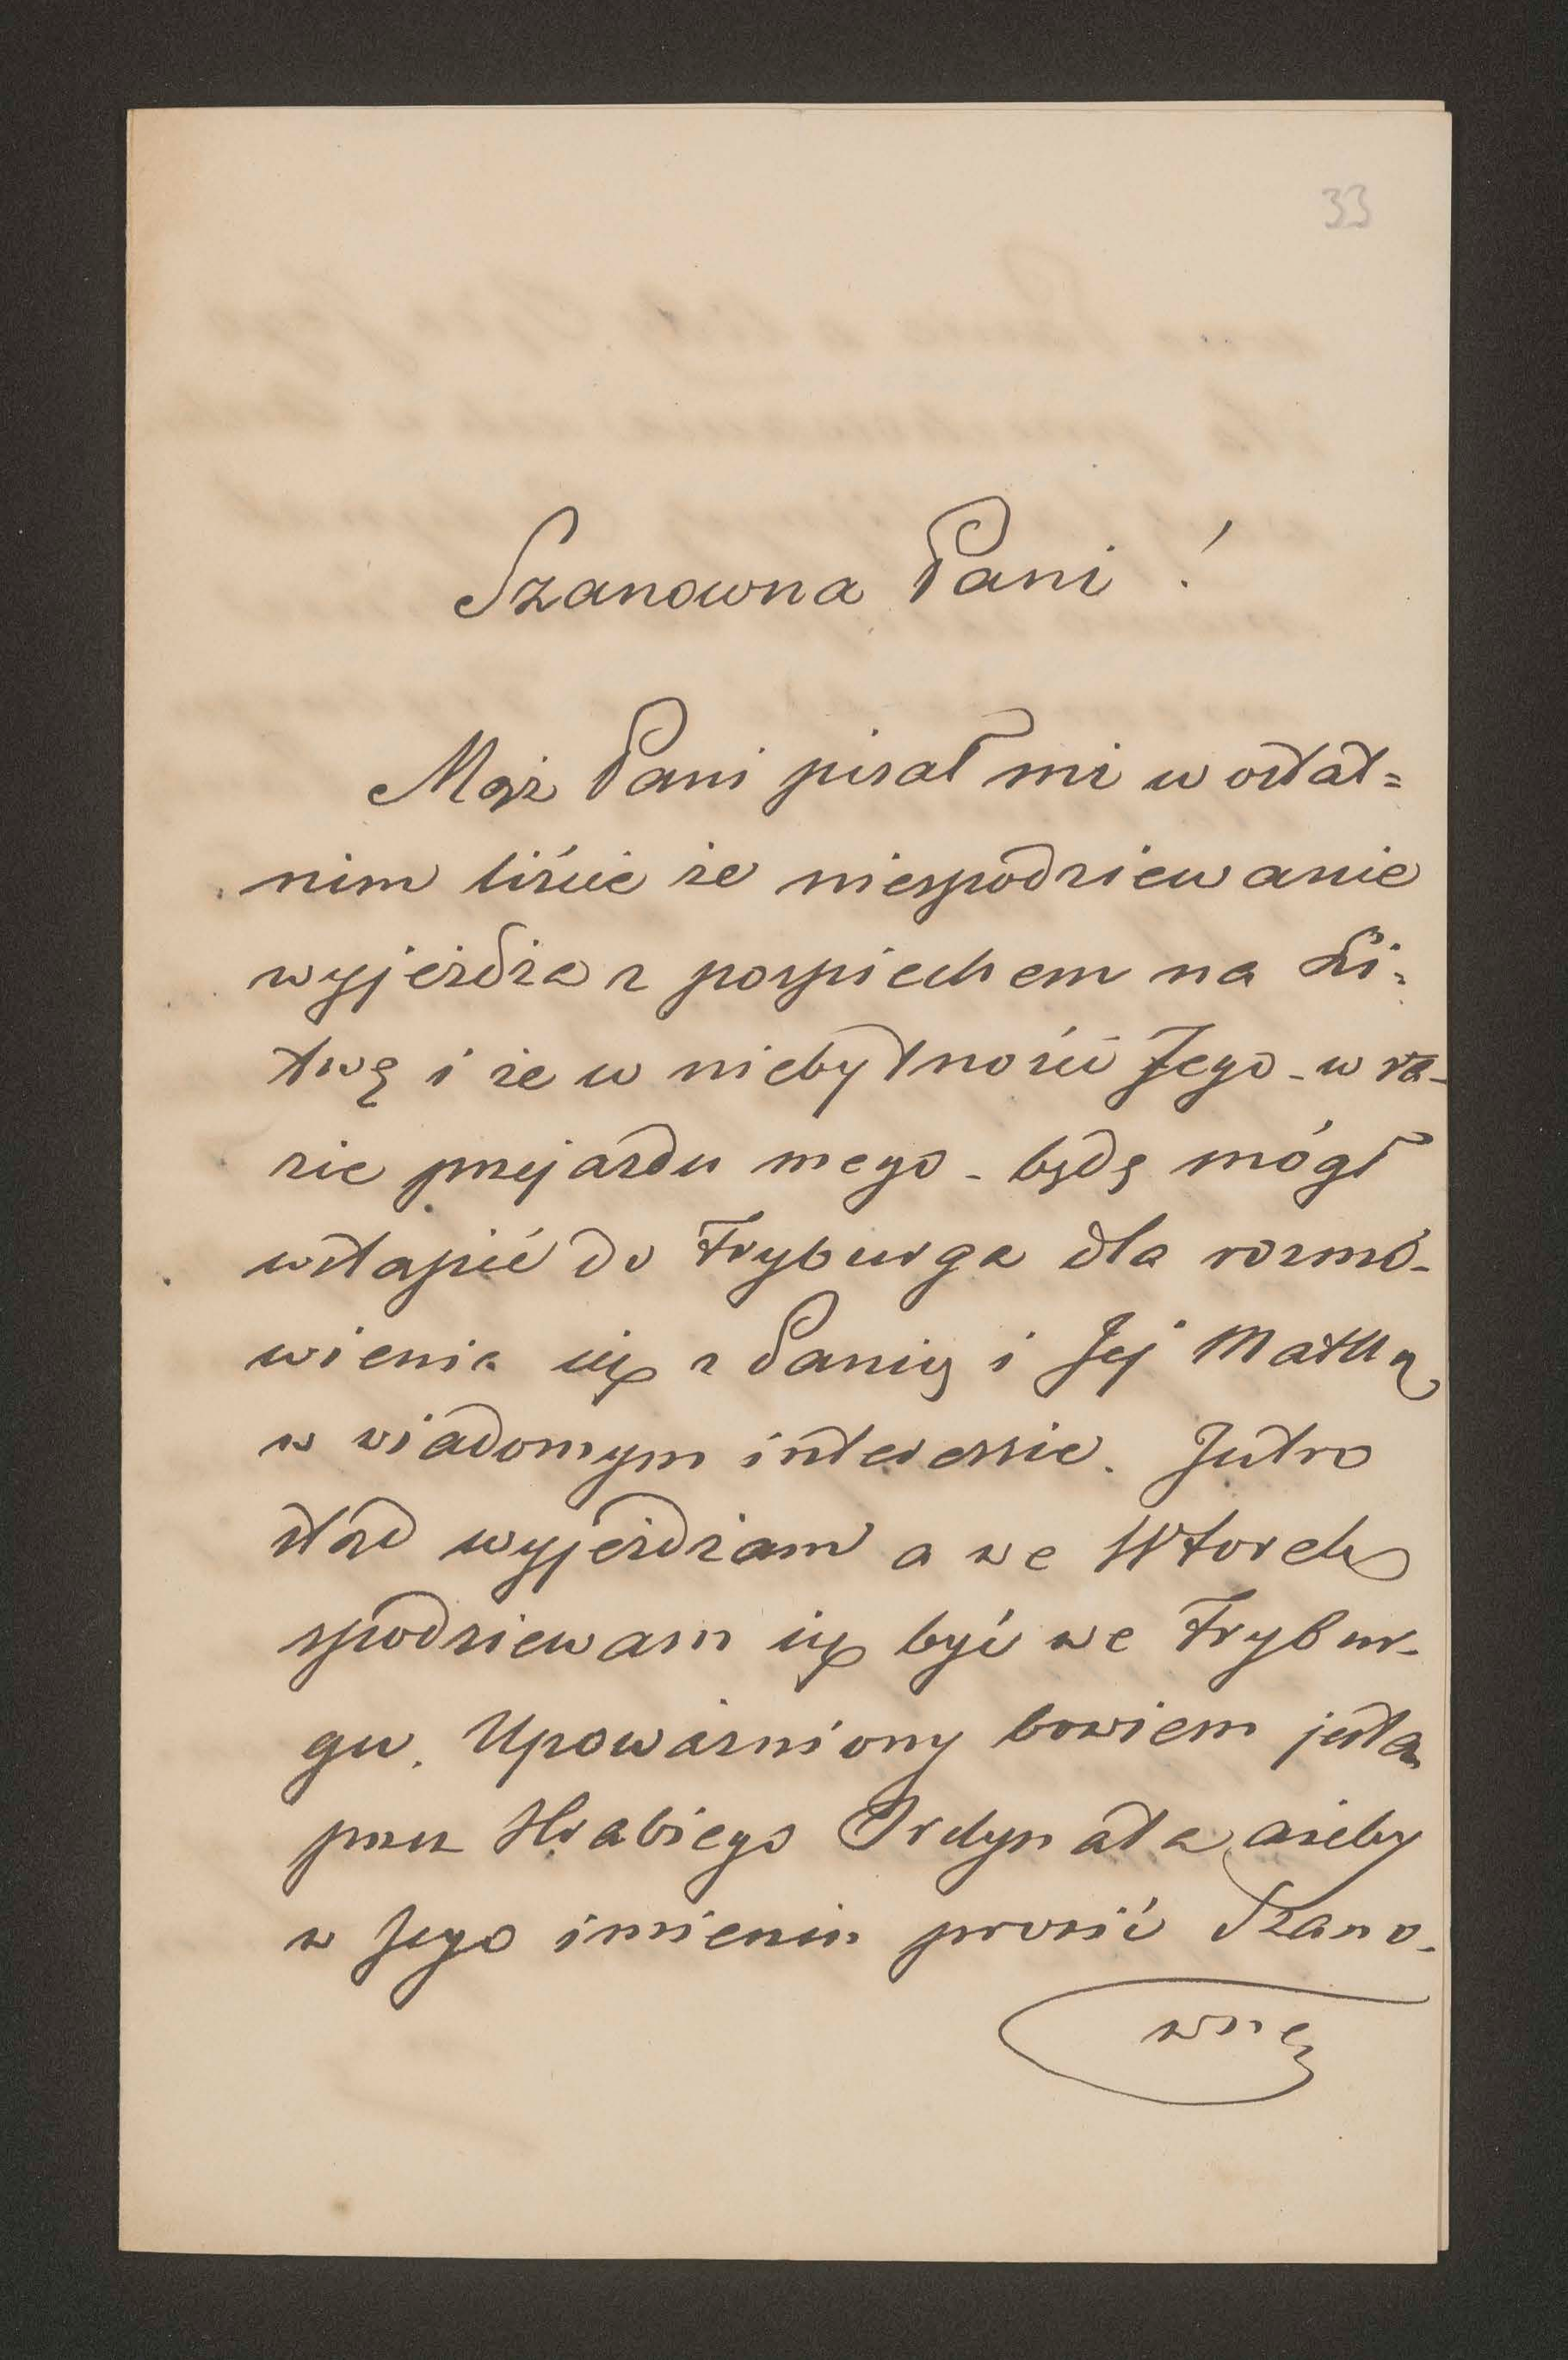 33
Szanowna Pani !
Mąż Pani pisał mi w ostat=
nim liście że niespodziewanie
wyjeżdża z pospiechem na Li=
twę i że w niebytności Jego - w ra-
zie przejazdu mego - będę mógł
wstąpić do Fryburga dla rozmó-
wienia się z Panią i Jej Matką
w wiadomym interessie. Jutro
stąd wyjeżdżam a we Wtorek
spodziewam się być we Frybur-
gu. Upoważniony bowiem jestem
przez Hrabiego Ordynata, ażeby
w Jego imieniu prosić Szano-
wną